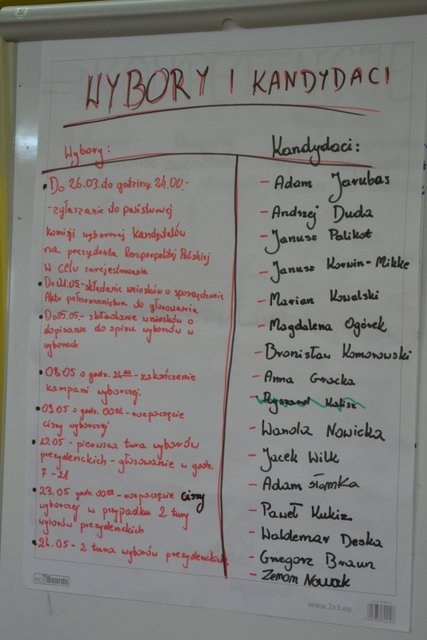 WYBORY I KANDYDACI
Wybory:
• Do 26.03. do godziny 24.00 -
- zgłaszanie do państwowej
komisji wyborczej kandydatów
na prezydenta Rzeczpospolitej Polskiej
w celu zarejestrowania
składanie wniosków o sporządzenie
Aktu pełnomocnictwa do głosowania
• Do 05.05. - składanie wniosków o
dopisanie do spisu wyborców w
wyborach
08.05 o godz. 24.00 - zakończenie
kampani wyborczej.
• 09.05 o godz. 00.00 - rozpoczęcie
ciszy wyborczej
• 10.05 - pierwsza tura wyborów
prezydenckich - głosowanie w godz.
7-21
• 23.05 godz. 00.00 - rozpoczęcie ciszy
wyborczej w przypadku 2 tury
wyborów prezydenckich
• 24.05 - 2 tura wyborów prezydenckich
Kandydaci:
- Adam Jarubas
- Andrzej Duda
- Janusz Palikot
- Janusz Korwin-Mikke
- Marian Kowalski
- Magdalena Ogórek
- Bronisław Komorowski
- Anna Grodzka
- Ryszard Kalisz
- Wanda Nowicka
- Jacek Wilk
- Adam Słomka
- Paweł Kukiz
- Waldemar Deska
- Grzegorz Braun
- Zenon Nowak
eco Boards
www.2x3.eu